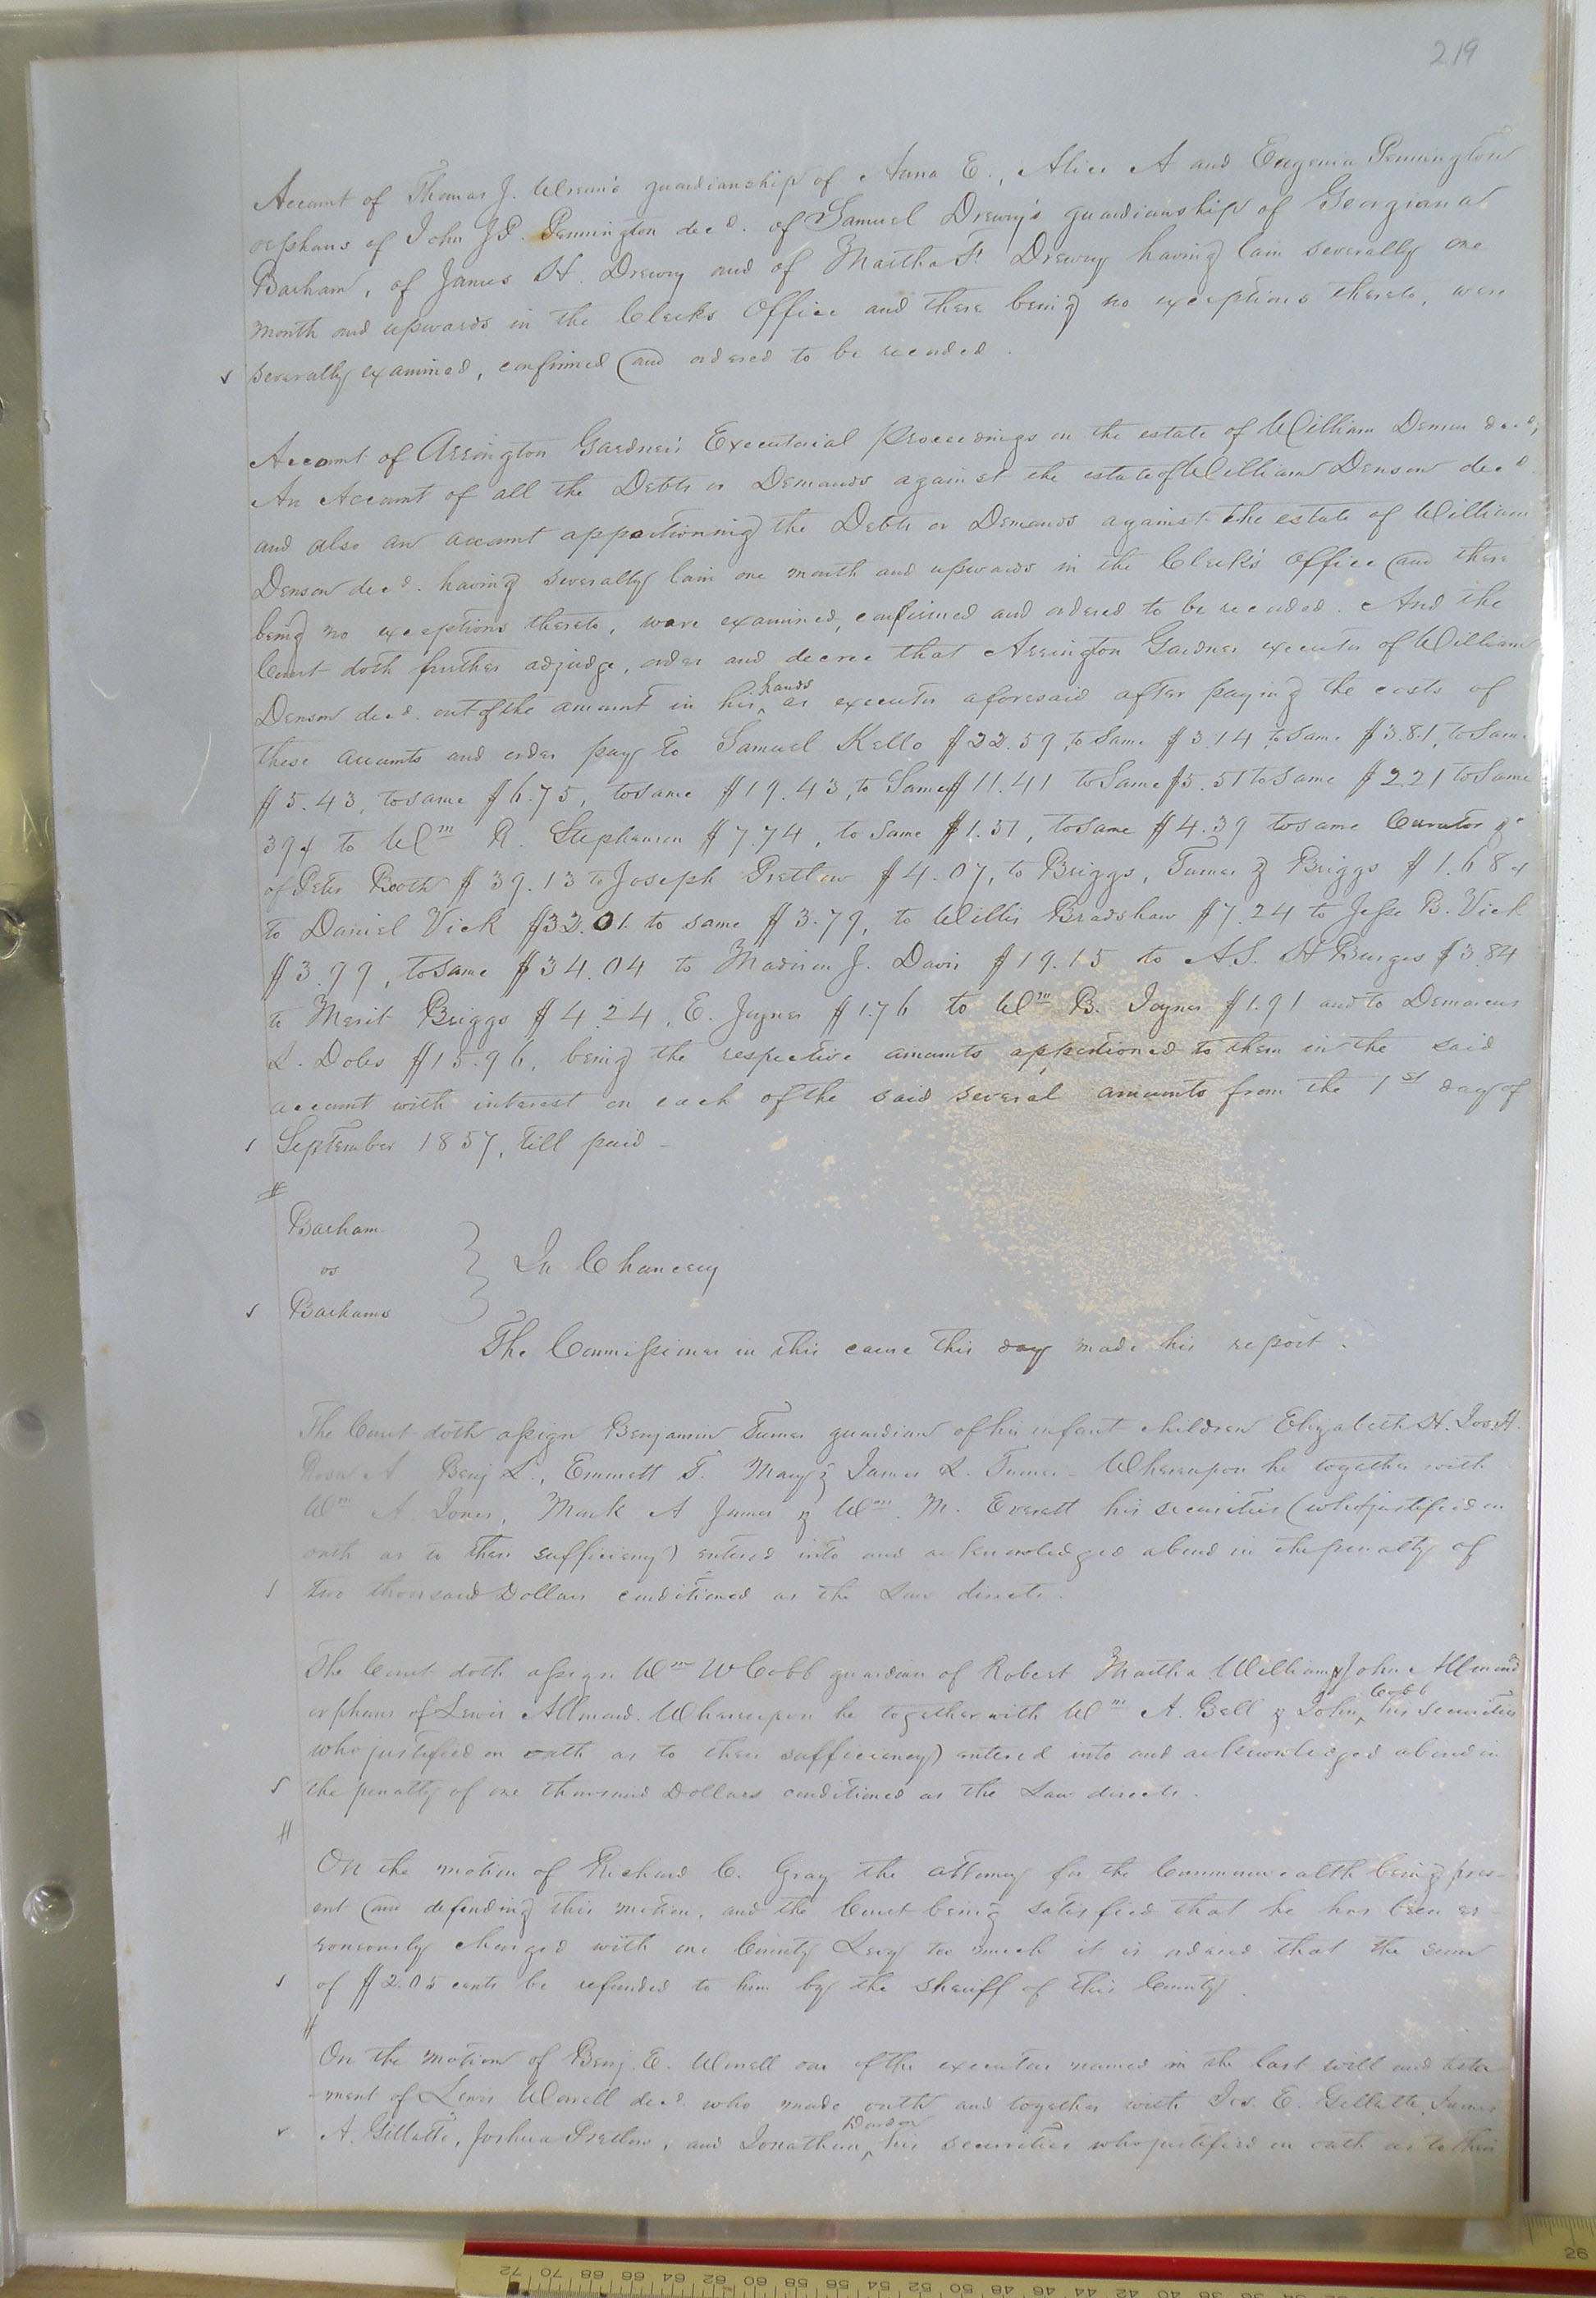 219
Account of Thomas J. Wrenn's guardianship of Anna E., Alice A and Eugenia Pennington
orphans of John J P Pennington dec'd. of Samuel Drewry's guardianship of Georgiana
Barham, of James H. Drewry and of Martha F. Drewry having lain severally one
month and upwards in the Clerks Office and there being no exceptions thereto, were
severally examined, confirmed and ordered to be recorded.
Account of Arrington Gardner's Executorial Proceedings on the estate of William Denson dec'd,
An Account of all the Debts or Demands against the estate of William Denson dec'd
and also an account apportioning the Debts or Demands against the estate of William
Denson dec'd. having severally lain one month and upwards in the Clerk's Office and there
being no exceptions thereto, were examined, confirmed and ordered to be recorded. And the
Court doth further adjudge, order and decree that Arrington Gardner executor of William
Denson dec'd. out of the amount in his hands as executor aforesaid after paying the costs of
these accounts and order pay to Samuel Kello $22.59, to Same $3.14 to Same $3.81, to Same
$5.43, to same $6.75, to same $19.43, to Same $11.41 to Same $5.51 to Same $2.21 to Same
39¢ to Wm R. Stephenson $7.74, to Same $1.51, to same $4.39 to same Curator &c
of Peter Booth $39.13 to Joseph Pretlow $4.07, to Briggs, Turner & Briggs $1.68
to Daniel Vick $32.01 to same $3.79, to Willis Bradshaw $7.24 to Jesse B. Vick
$3.99, to Same $34.04 to Madison J. Davis $19.15 to A.S. H Burges $3.84
to Merit Briggs $4.24, E. Joyner $1.76 to Wm B. Joyner $1.91 and to Demarcus
L. Doles $15.96, being the respective amounts apportioned to them in the said
account with interest on each of the said several amounts from the 1st day of
September 1857, till paid
Barham
vs
In Chancery
Barhams
The Commissioner in this cause this day made his report.
The Court doth assign Benjamin Turner guardian of his infant children Elizabeth H. Jos. H.
A Benj L., Emmett T. Mary & James L. Turner. Whereupon he together with
Wm A Jones, Mark A James & Wm. M. Everett his securities (who justified on
oath as to their sufficiency) entered into and acknowledged a bond in the penalty of
two thousand Dollars conditioned as the Law directs.
The Court doth assign Wm W Cobb guardian of Robert Martha William & John Allmond
orphans of Lewis Allmond. Whereupon he together with Wm A. Bell & John Cobb his securities
who justified on oath as to their sufficiency) entered into and acknowledged a bond in
the penalty of one thousand Dollars conditioned as the Law directs.
On the motion of Richard C. Gray the attorney for the Commonwealth being pres-
ent and defending this motion, and the Court being satisfied that he has been er-
roneously charged with one County Levy too much it is ordered that the sum
of $2.05 cents be refunded to him by the Sheriff of this County.
On the motion of Benj. E. Worrell one of the executors named in the last will and testa
ment of Lewis Worrell dec'd. who made oath and together with Jos. E. Gillette, James
A. Gillette, Joshua Pretlow, and Jonathan Denson his securities who justified on oath as to their